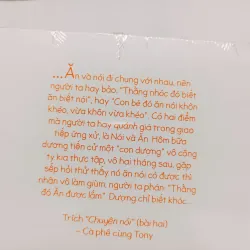 ...Ăn và nói đi chung với nhau, nên
người ta hay bảo, "Thằng nhóc đó biết
ăn biết nói", hay "Con bé đó ăn nói khôn
khéo, vừa khôn vừa khéo". Có hai điểm
mà người ta hay quánh giá trong giao
tiếp ứng xử, là Nói và Ăn. Hôm bữa
dượng tiến cử một "cá dượng" vô công
ty kia thực tập, vô hai tháng sau, gặp
sếp hỏi thử thấy nó ăn nói có được thì
nhận vô làm giùm, người ta phán: "Thằng
đó Ăn được lắm". Dượng chỉ biết khóc...
Trích "Chuyện nói" (bài hai)
- Cà phê cùng Tony